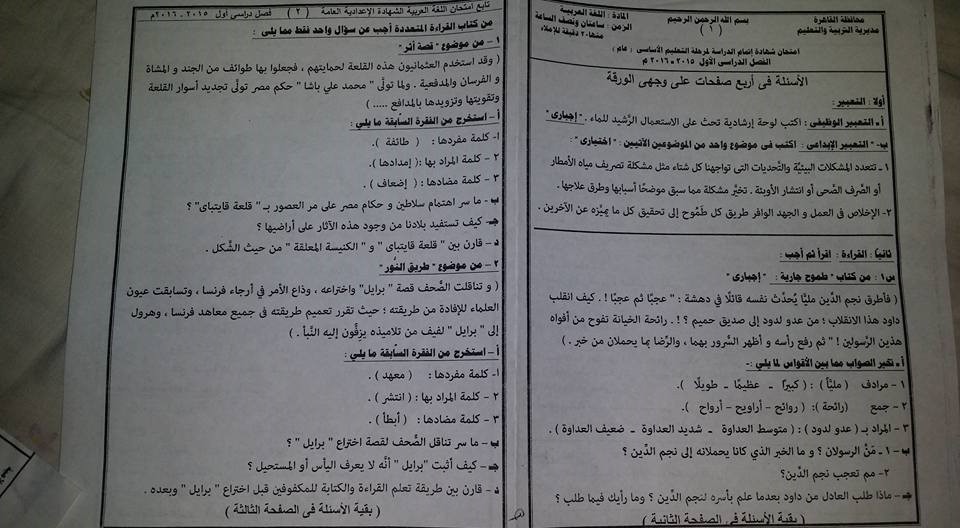 محافظة القاهرة
مديرية التربية والتعليم
بسم الله الرحمن الرحيم
( ١ )
المادة: اللغة العربية
الزمن: ساعتان ونصف الساعة
منها ٢٠ دقيقة للإملاء
امتحان شهادة إتمام الدراسة لمرحلة التعليم الأساسى ( عام )
الفصل الدراسى الأول ٢٠١٥ - ٢٠١٦ م
الأسئلة فى أربع صفحات على وجهى الورقة
أولا : التعبير :
أ- التعبير الوظيفى : اكتب لوحة إرشادية تحث على الاستعمال الرَّشيد للماء . " إجبارى "
ب- "التعبير الإبداعى : اكتب فى موضوع واحد من الموضوعين الآتيين : " اختيارى " :
١ ـ تتعدد المشكلات البيئيَّة والتَّحديات التى تواجهنا كل شتاء مثل مشكلة تصريف مياه الأمطار
أو الصَّرف الصِّحى أو انتشار الأوبئة . تخيَّر مشكلة مما سبق موضحًا أسبابها وطرق علاجها .
٢- الإخلاص فى العمل و الجهد الوافر طريق كل طَمُوح إلى تحقيق كل ما يميِّزه عن الآخرين .
ثانيًا : القراءة : اقرأ ثم أجب :
س١ : من كتاب " طموح جارية : " إجبارى "
( فأطرق نجم الدِّين مليًّا يُحدِّث نفسه قائلًا في دهشة : " عجبًا ثم عجبًا ! . كيف انقلب
داود هذا الانقلاب ؛ من عدو لدود إلى صديق حميم ؟ ! . رائحة الخيانة تفوح من أفواه
هذين الرَّسولين ! " ثم رفع رأسه و أظهر السُّرور بهما ، والرِّضا بما يحملان من خبر . )
أ ـ تخير الصواب مما بين الأقواس لما يلى :-
١ - مرادف ( مليًّا ) : ( كبيرًا ـ عظيمًا ـ طويلًا ).
٢ - جمع ( رائحة ): ( روائح - أراويح - أرواح ).
٣ - المراد بـ ( عدو لدود ) : ( متوسط العداوة ـ شديد العداوة ـ ضعيف العداوة ) .
ب - ١ - مَنْ الرسولان ؟ و ما الخبر الذي كانا يحملانه إلى نجم الدِّين ؟
٢- مم تعجب نجم الدِّين؟
جـ - ماذا طلب العادل من داود بعدما علم بأسره لنجم الدِّين ؟ وما رأيك فيما طلب ؟
( بقية الأسئلة فى الصفحة الثانية )
تابع امتحان اللغة العربية الشهادة الإعدادية العامة ( ٢ ) فصل دراسى أول ٢٠١٥ - ٢٠١٦م
من كتاب القراءة المتعددة أجب عن سؤال واحد فقط مما يلى :
١ - من موضوع " قصة أثر "
( وقد استخدم العثمانيون هذه القلعة لحمايتهم ، فجعلوا بها طوائف من الجند و المشاة
و الفرسان والمدفعية . ولما تولَّى " محمد علي باشا " حكم مصر تولَّى تجديد أسوار القلعة
وتقويتها وتزويدها بالمدافع ..... )
أ - استخرج من الفقرة السَّابقة ما يلي :
١- كلمة مفردها : ( طائفة ).
٢ - كلمة المراد بها : ( إمدادها ).
٣ - كلمة مضادها : ( إضعاف ) .
ب - ما سر اهتمام سلاطين و حكام مصر على مر العصور بـ " قلعة قايتباى" ؟
جـ - كيف تستفيد بلادنا من وجود هذه الآثار على أراضيها ؟
د - قارن بين " قلعة قايتباى " و " الكنيسة المعلقة " من حيث الشَّكل .
٢ - من موضوع " طريق النُّور "
( و تناقلت الصُّحف قصة " برايل" واختراعه ، وذاع الأمر في أرجاء فرنسا ، وتسابقت عيون
العلماء للإفادة من طريقته ؛ حيث تقرر تعميم طريقته في جميع معاهد فرنسا ، وهرول
إلى " برايل " لفيف من تلاميذه يزفُّون إليه النَّبأ . )
أ - استخرج من الفقرة السَّابقة ما يلي :
١- كلمة مفردها : ( معهد ) .
٢ - كلمة المراد بها : ( انتشر ) .
٣ - كلمة مضادها : ( أبطأ ) .
ب - ما سر تناقل الصُّحف لقصة اختراع " برايل " ؟
جـ - كيف أثبت "برايل " أنَّه لا يعرف اليأس أو المستحيل ؟
د - قارن بين طريقة تعلم القراءة والكتابة للمكفوفين قبل اختراع " برايل " وبعده .
( بقية الأسئلة فى الصفحة الثالثة )